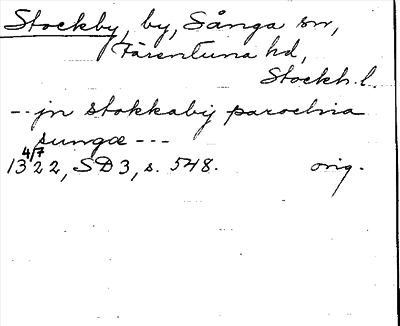 Stockby, by, Sånga sn,
Färentuna hd,
Stockh. l.
-- jn stokkaby parochia
sungæ ---
4/7
1322, SD 3, s. 548.    orig.